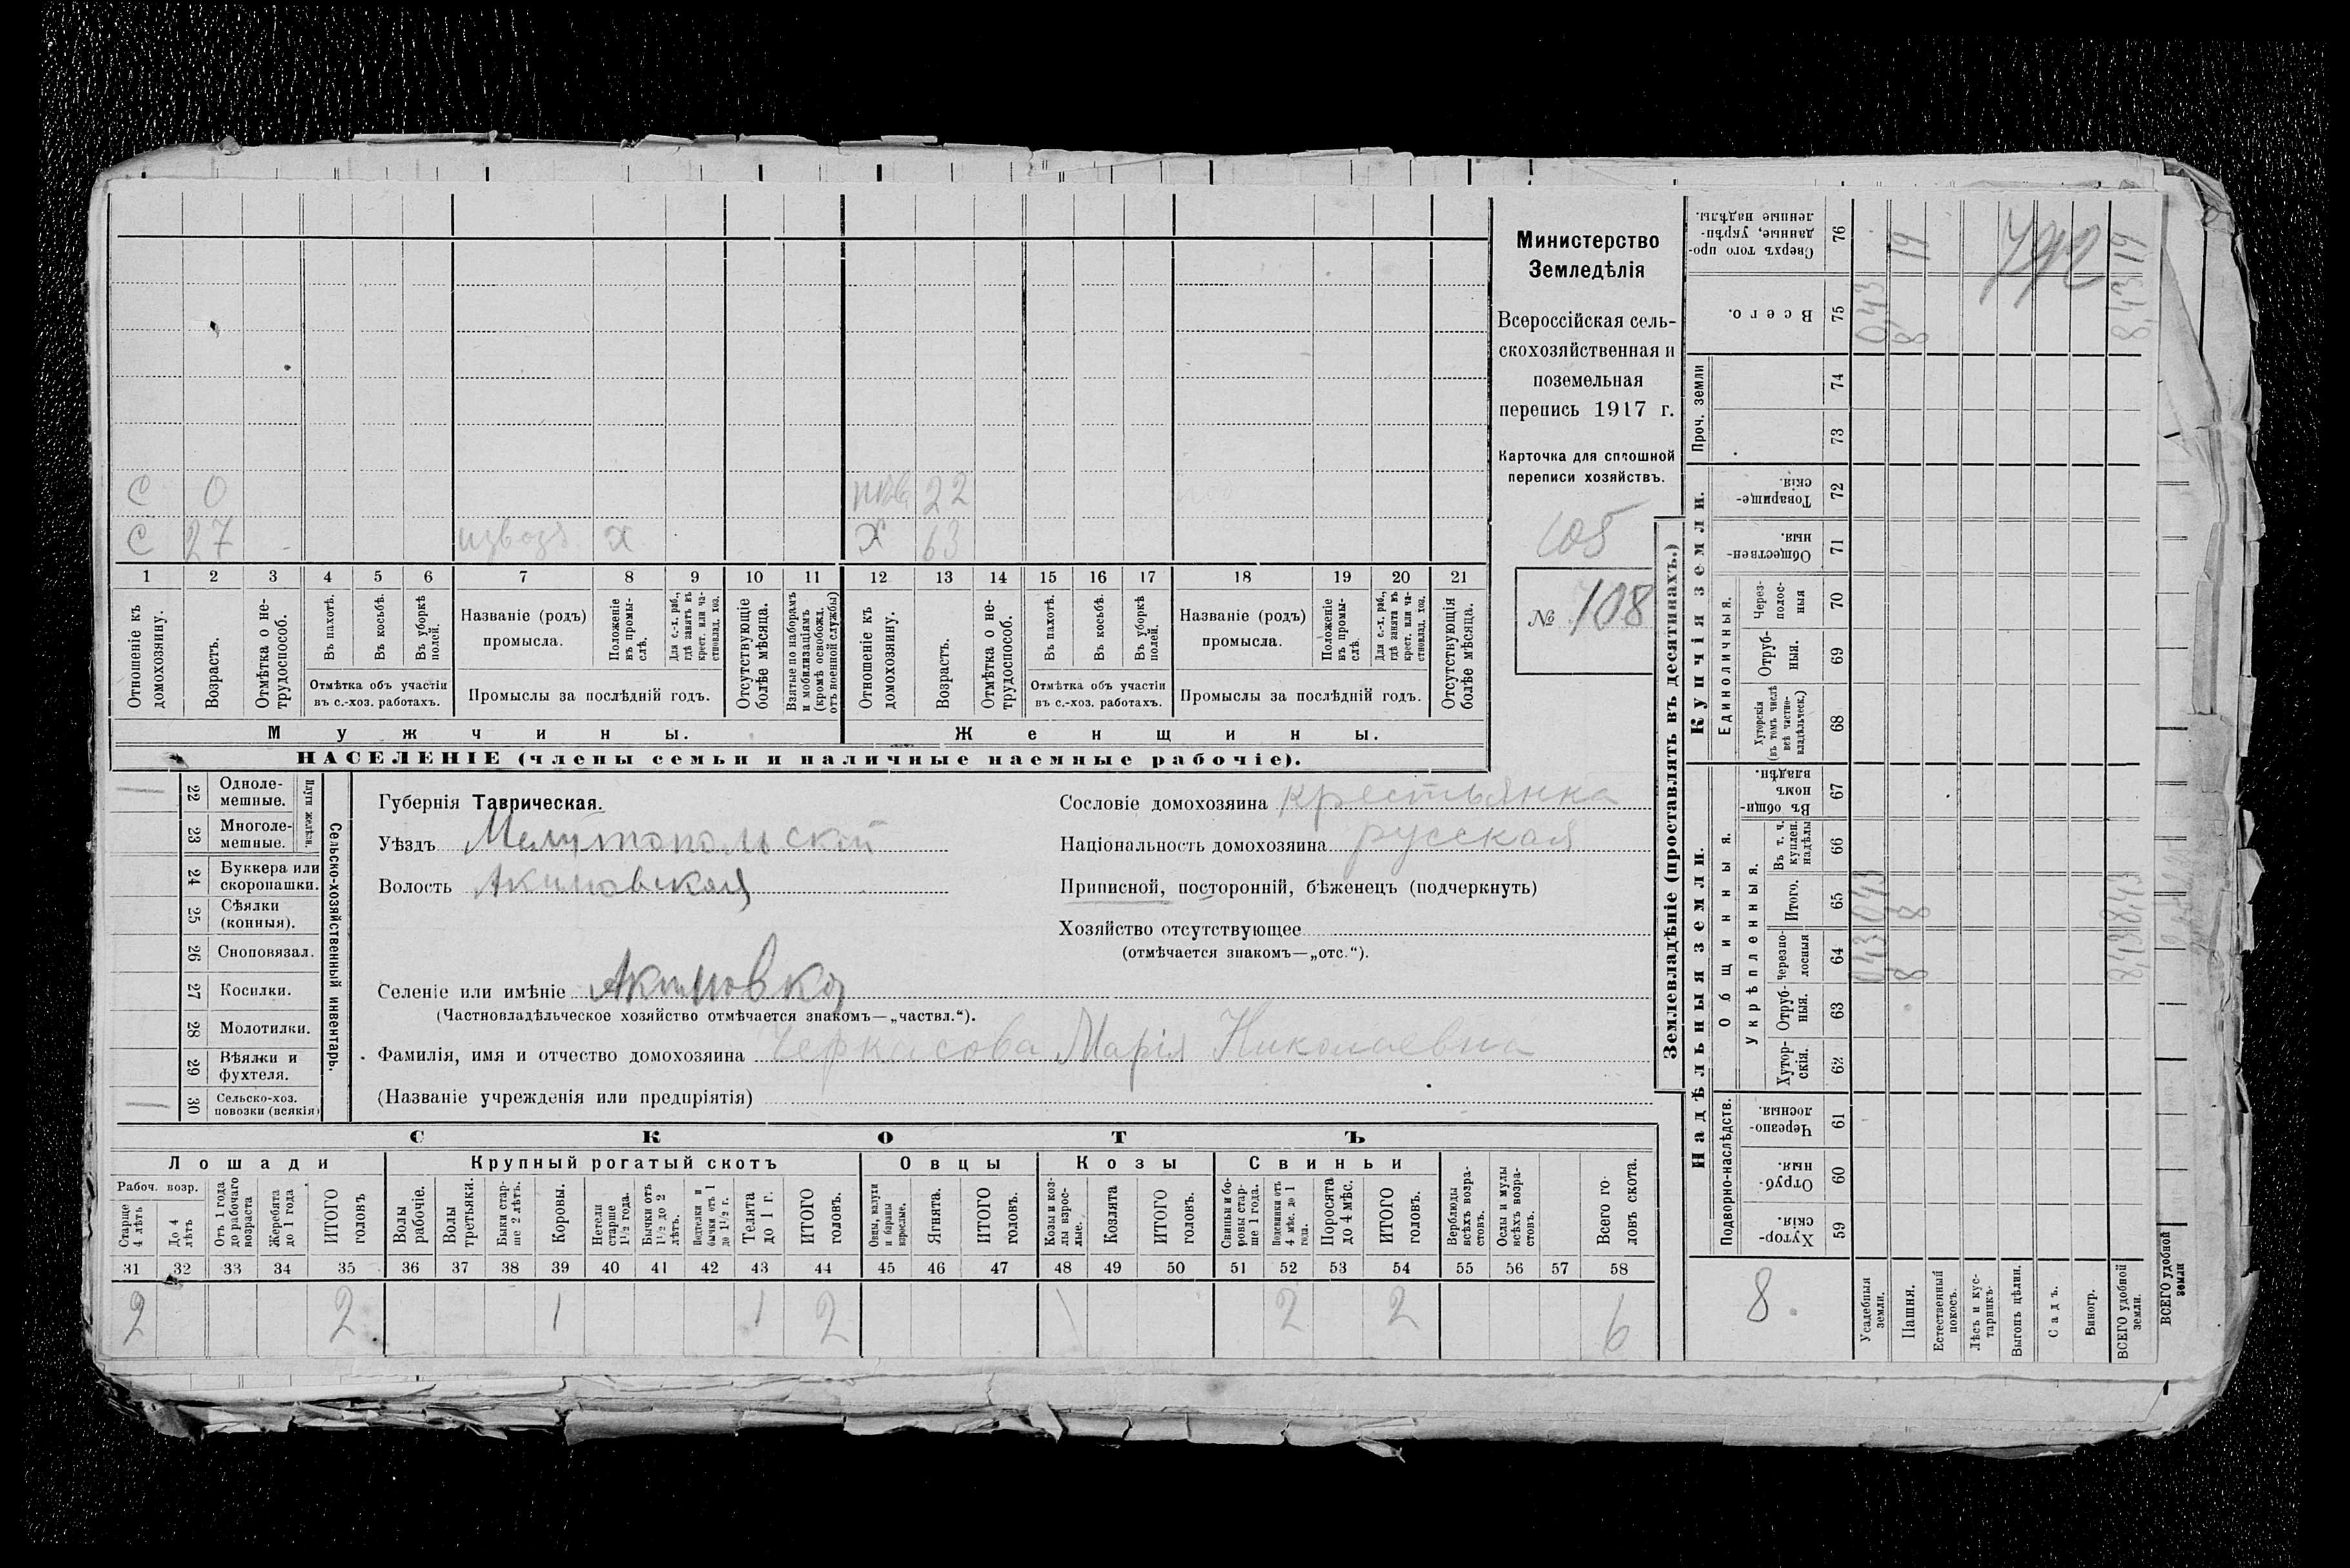 С 0 22
С 27 извозъ х Х 63
1 2 3 4 5 6 7 8 9 10 11 12 13 14 15 16 17 18 19 20 21
Отношеніе къ домохозяину.
Возрастъ.
Отмѣтка о не-
трудоспособ.
Въ пахотѣ.
Въ косьбѣ.
Въ уборкѣ полей.
Отмѣтка объ участіи
въ с.-хоз. работахъ.
Названіе (родъ)
промысла.
Положеніе
въ промы-
слѣ.
Для с.-х. раб.,
гдѣ занятъ въ
крест. или ча-
стновлад. хоз.
Промыслы за послѣдній годъ.
Отсутствующіе
болѣе мѣсяца.
Взятые по наборамъ
и мобилизаціямъ
(кромѣ освобожд.
отъ военной службы)
Отношеніе къ
домохозяину.
Возрастъ.
Отмѣтка о не-
трудоспособ.
Въ пахотѣ.
Въ косьбѣ.
Въ уборкѣ
полей.
Отмѣтка объ участіи
въ с.-хоз. работахъ.
Названіе (родъ)
промысла.
Положеніе
въ промы-
слѣ.
Для с.-х. раб.,
гдѣ занята въ
крест. или ча-
стновлад. хоз.
Промыслы за послѣдній годъ.
Отсутствующія
болѣе мѣсяца.
Мужчины.
Женщины.
НАСЕЛЕНІЕ (члены семьи и наличные наемные рабочіе).
Министерство
Земледѣлія
Всероссійская сель-
скохозяйственная и
поземельная
перепись 1917 г.
Карточка для сплошной
переписи хозяйствъ.
105
№ 108
Сельско-хозяйственный инвентарь.
Плуги желѣзн.
22 Одноле-
мешные.
23 Многоле-
мешные.
24 Буккера или
скоропашки.
25 Сѣялки
(конныя).
26 Сноповязал.
27 Косилки.
28 Молотилки.
29 Вѣялки и
фухтеля.
30 Сельско-хоз.
повозки (всякія)
Губернія Таврическая.
Уѣздъ Мелитопольскій
Волость Акимовская
Селеніе или имѣніе Акимовка
(Частновладѣльческое хозяйство отмѣчается знакомъ—„частвл.“).
Фамилія, имя и отчество домохозяина Черкасова Марія Николаевна
(Названіе учрежденія или предпріятія)
Сословіе домохозяина крестьянка
Національность домохозяина русская
Приписной, посторонній, бѣженецъ (подчеркнуть)
Хозяйство отсутствующее
(отмѣчается знакомъ—„отс.“).
СКОТЪ
Лошади Крупный рогатый скотъ Овцы Козы Свиньи
Рабоч. возр.
Старше
4 лѣтъ
До 4
лѣтъ
Отъ 1 года
до рабочаго
возраста
Жеребята
до 1 года
ИТОГО
головъ
Волы
рабочіе.
Волы
третьяки.
Быки стар-
ше 2 лѣтъ.
Коровы.
Нетели
старше
1½ года.
Бычки отъ
1½ до 2
лѣтъ.
Подтелки и
бычки отъ 1
до 1½ г.
Телята
до 1 г.
ИТОГО
головъ.
Овцы, валухи
и бараны
взрослые.
Ягнята.
ИТОГО
головъ.
Козы и коз-
лы взрос-
лые.
Козлята
ИТОГО
головъ.
Свиньи и бо-
ровы стар-
ше 1 года.
Подсвинки отъ
4 мѣс. до 1
года.
Поросята
до 4 мѣс.
ИТОГО
головъ.
Верблюды
всѣхъ возра-
стовъ.
Ослы и мулы
всѣхъ возра-
стовъ.
Всего го-
ловъ скота.
31 32 33 34 35 36 37 38 39 40 41 42 43 44 45 46 47 48 49 50 51 52 53 54 55 56 57 58
2 2 1 1 2 2 2 6
Землевладѣніе (проставлять въ десятинахъ.)
Купчія земли.
Надѣльныя земли.
Сверхъ того про-
данные, укрѣп-
ленные надѣлы.
76
Всего.
75
Проч. земли
74
73
Товарище-
скія.
72
Обществен-
ныя.
71
Единоличныя.
Через-
полос-
ныя
70
Отруб-
ныя.
69
Хуторскія
(въ томъ числѣ
всѣ частно-
владѣльческ.)
68
Общинныя.
Въ общин-
номъ
владѣн.
67
Укрѣпленныя.
Въ т. ч.
куплен.
надѣлы
66
Итого.
65
Черезпо-
лосныя
64
Отруб-
ныя.
63
Хутор-
скія.
62
Подворно-наслѣдств.
Черезпо-
лосныя.
61
Отруб-
ныя.
60
Хутор-
скія.
59
19 19
0,43 8 8,43
0,43 8 8,43
0,43 8 8,43
8.
Усадебныя
земли.
Пашня.
Естественный
покосъ.
Лѣсъ и кус-
тарникъ.
Выгонъ цѣлин.
Садъ.
Виногр.
ВСЕГО удобной
земли.
ВСЕГО удобной
земли